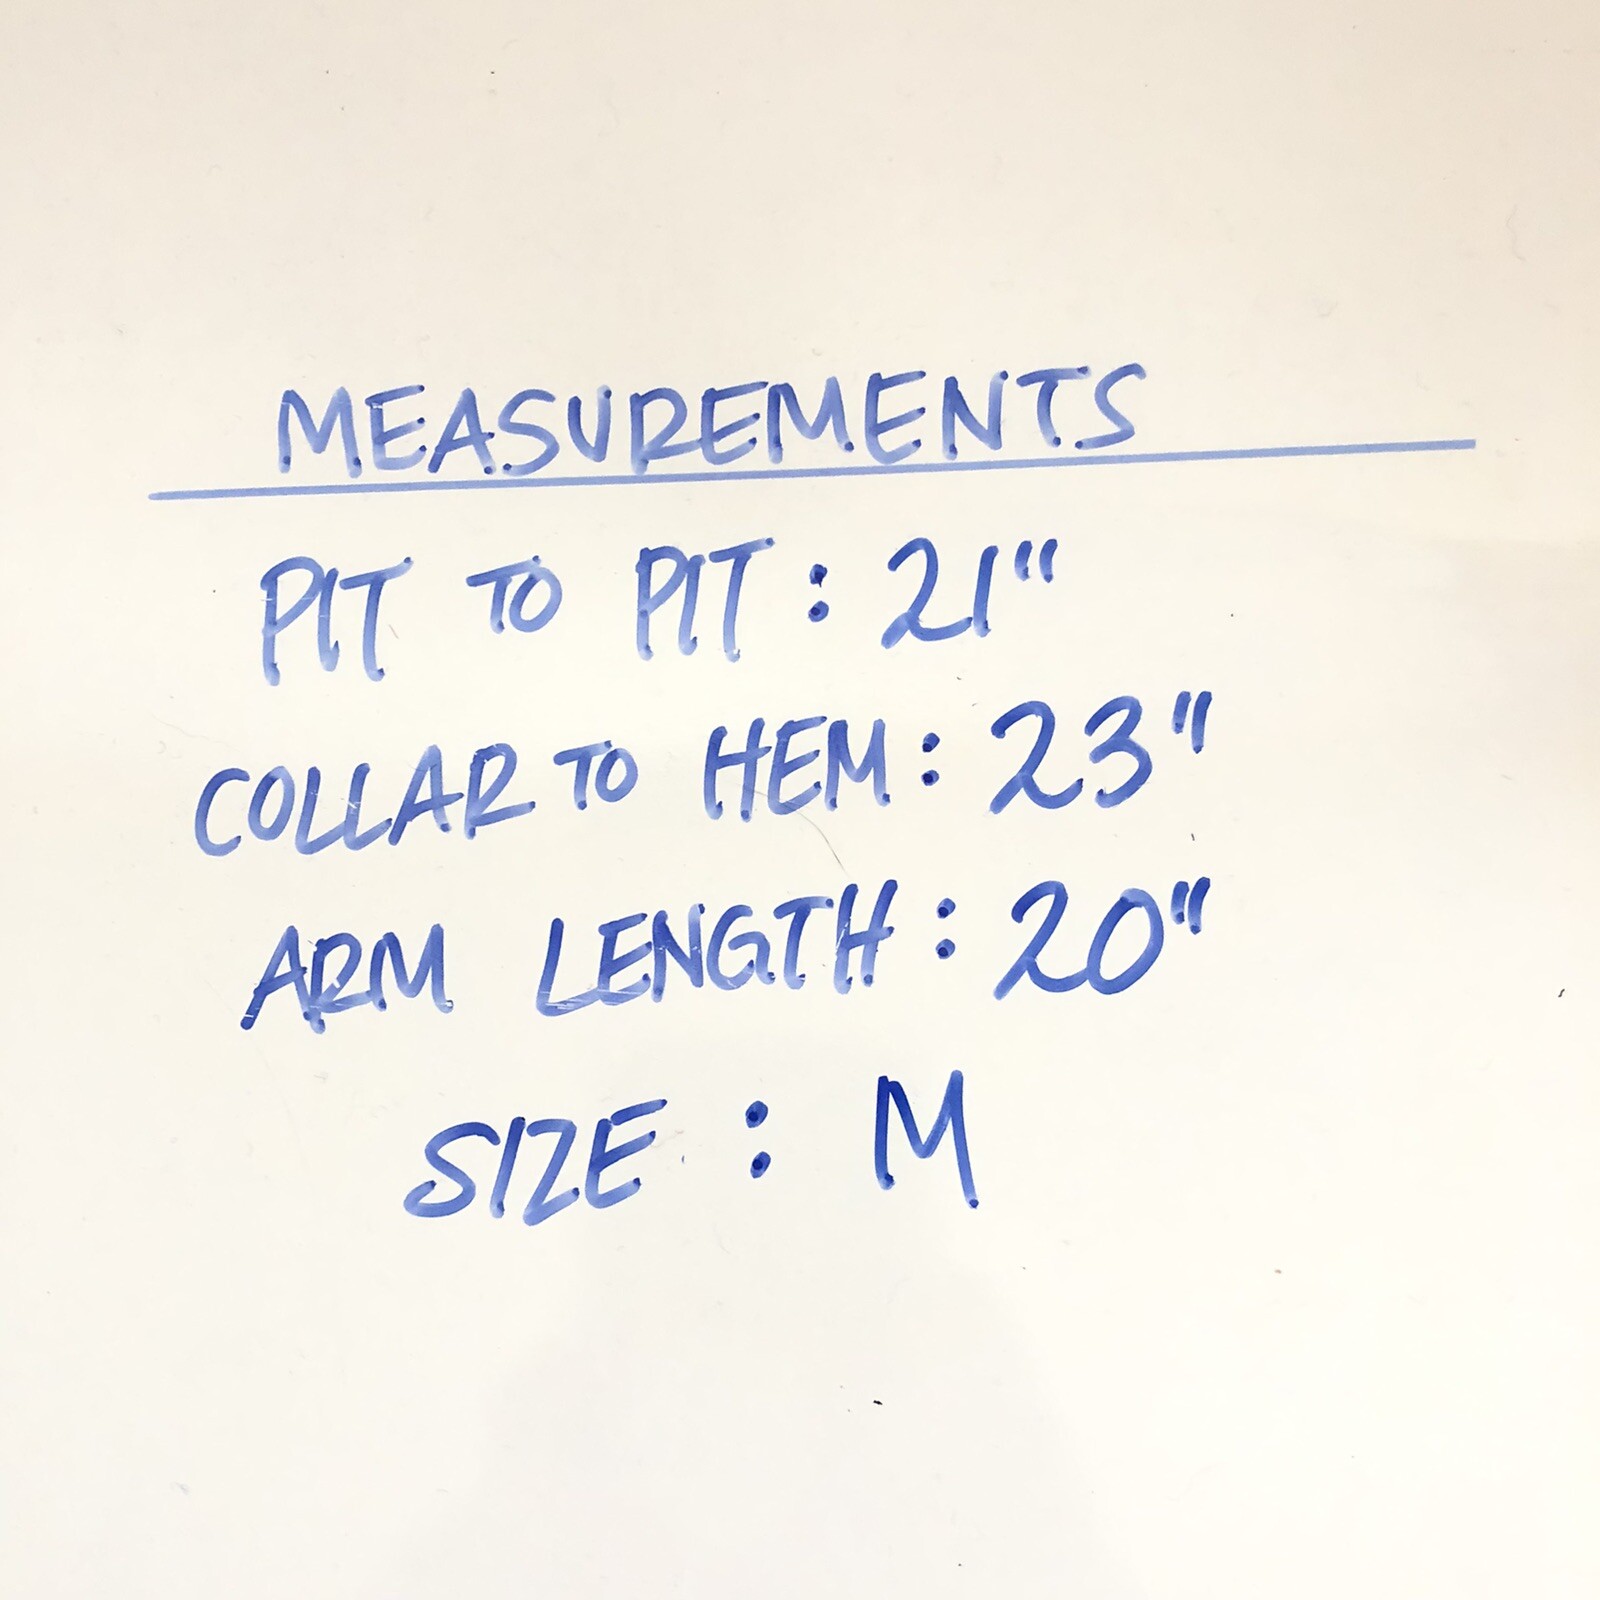 MEASUREMENTS
PIT TO PIT : 21"
COLLAR TO HEM : 23"
ARM LENGTH : 20"
SIZE : M